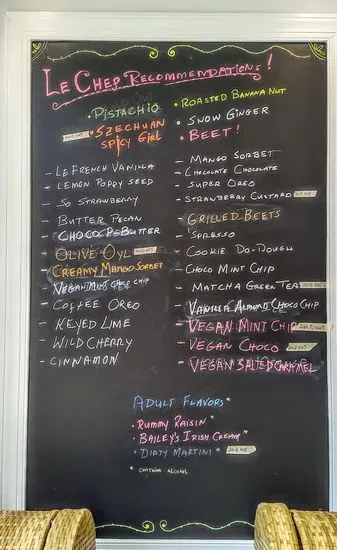 Le Chef Recommendations!
• Pistachio
SOLD OUT
• Szechuan
Spicy Girl
• Roasted Banana Nut
• Snow Ginger
• Beet!
- Le French Vanilla
- Lemon Poppy Seed
- So Strawberry
- Butter Pecan
- Choco P-Butter
- Olive Oyl SOLD OUT
- Creamy Mango Sorbet
- Vegan Mint Choc Chip
- Coffee Oreo
- Keyed Lime
- Wild Cherry
- Cinnamon
- Mango Sorbet
- Chocolate Chocolate
- Super Oreo
- Strawberry Custard SOLD OUT
- Grilled Beets
- 'Spresso
- Cookie Do-Dough
- Choco Mint Chip
- Matcha Green Tea SOLD OUT
- Vanilla Almond Choco Chip
- Vegan Mint Chip SOLD OUT
- Vegan Choco SOLD OUT
- Vegan Salted Caramel
Adult Flavors*
• Rummy Raisin*
• Bailey's Irish Cream*
• Dirty Martini* SOLD OUT
* contains alcohol